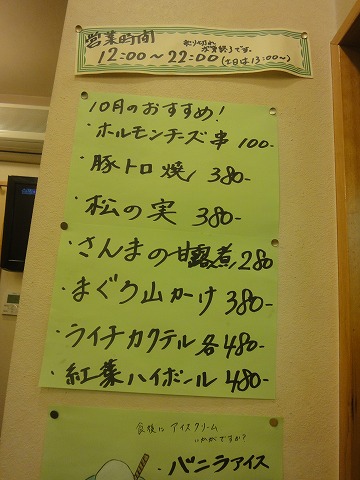 営業時間
売り切れ次第
営業終了です。
12:00〜22:00(土日は13:00〜)
10月のおすすめ!
・ホルモンチーズ串 100-
・豚トロ焼 380-
・松の実 380-
・さんまの甘露煮 280
・まぐろ山かけ 380-
・ライチカクテル各480-
・紅葉ハイボール 480-
食後に アイスクリーム
いかがですか?
・バニラアイス